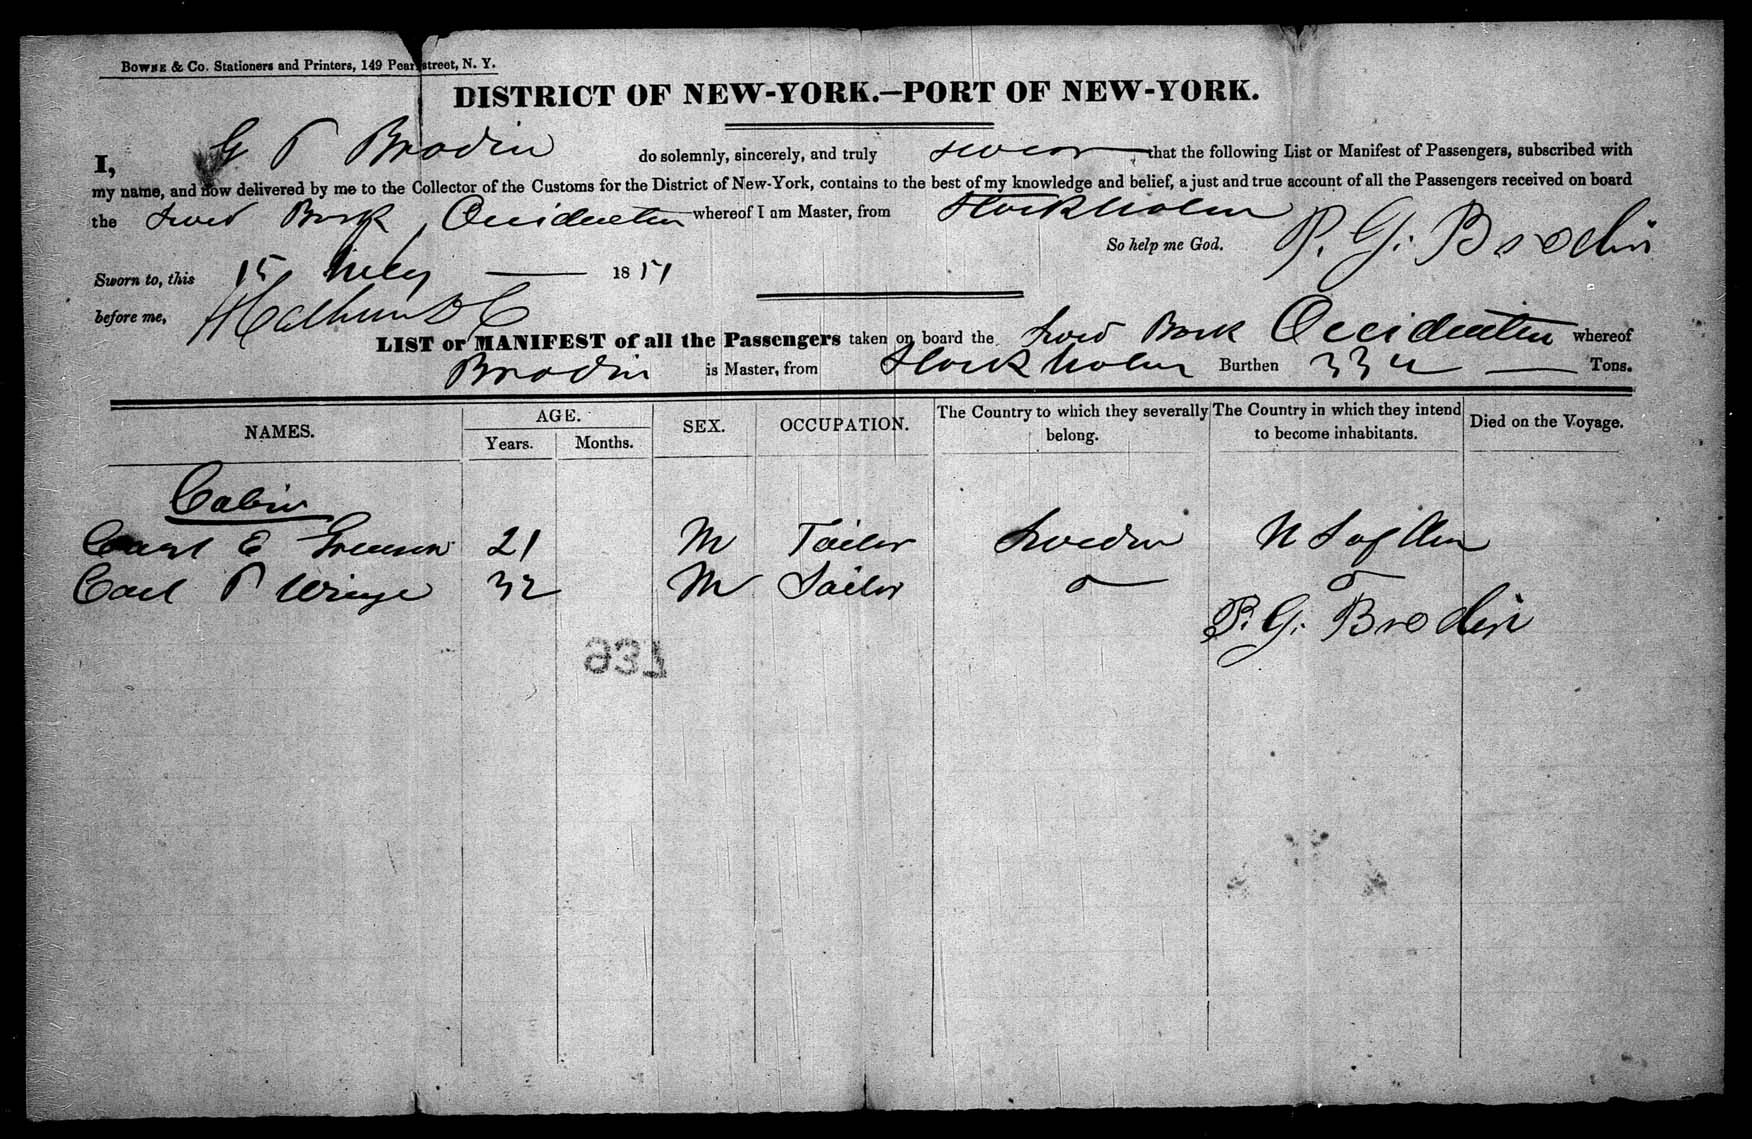 BOWNE & Co. Stationers and Printers, 149 Pearl street, N. Y.
DISTRICT OF NEW-YORK.—PORT OF NEW-YORK.
I, G P Brodin do solemnly, sincerely, and truly swear that the following List or Manifest of Passengers, subscribed with
my name, and now delivered by me to the Collector of the Customs for the District of New-York, contains to the best of my knowledge and belief, a just and true account of all the Passengers received on board
the Swed Bark Occidenten whereof I am Master, from Stockholm
So help me God. P. G. Brodin
Sworn to, this 15 1851
before me,
LIST or MANIFEST of all the Passengers taken on board the Swed Bark Occidenten whereof
Brodin is Master, from Stockholm Burthen Tons.
NAMES. AGE. Years. Months. SEX. OCCUPATION. The Country to which they severally belong. The Country in which they intend to become inhabitants. Died on the Voyage.
Cabin
Carl E 21 M Tailor Sweden U S of Am
Carl P Winge 32 M Sailor
P. G. Brodin
931